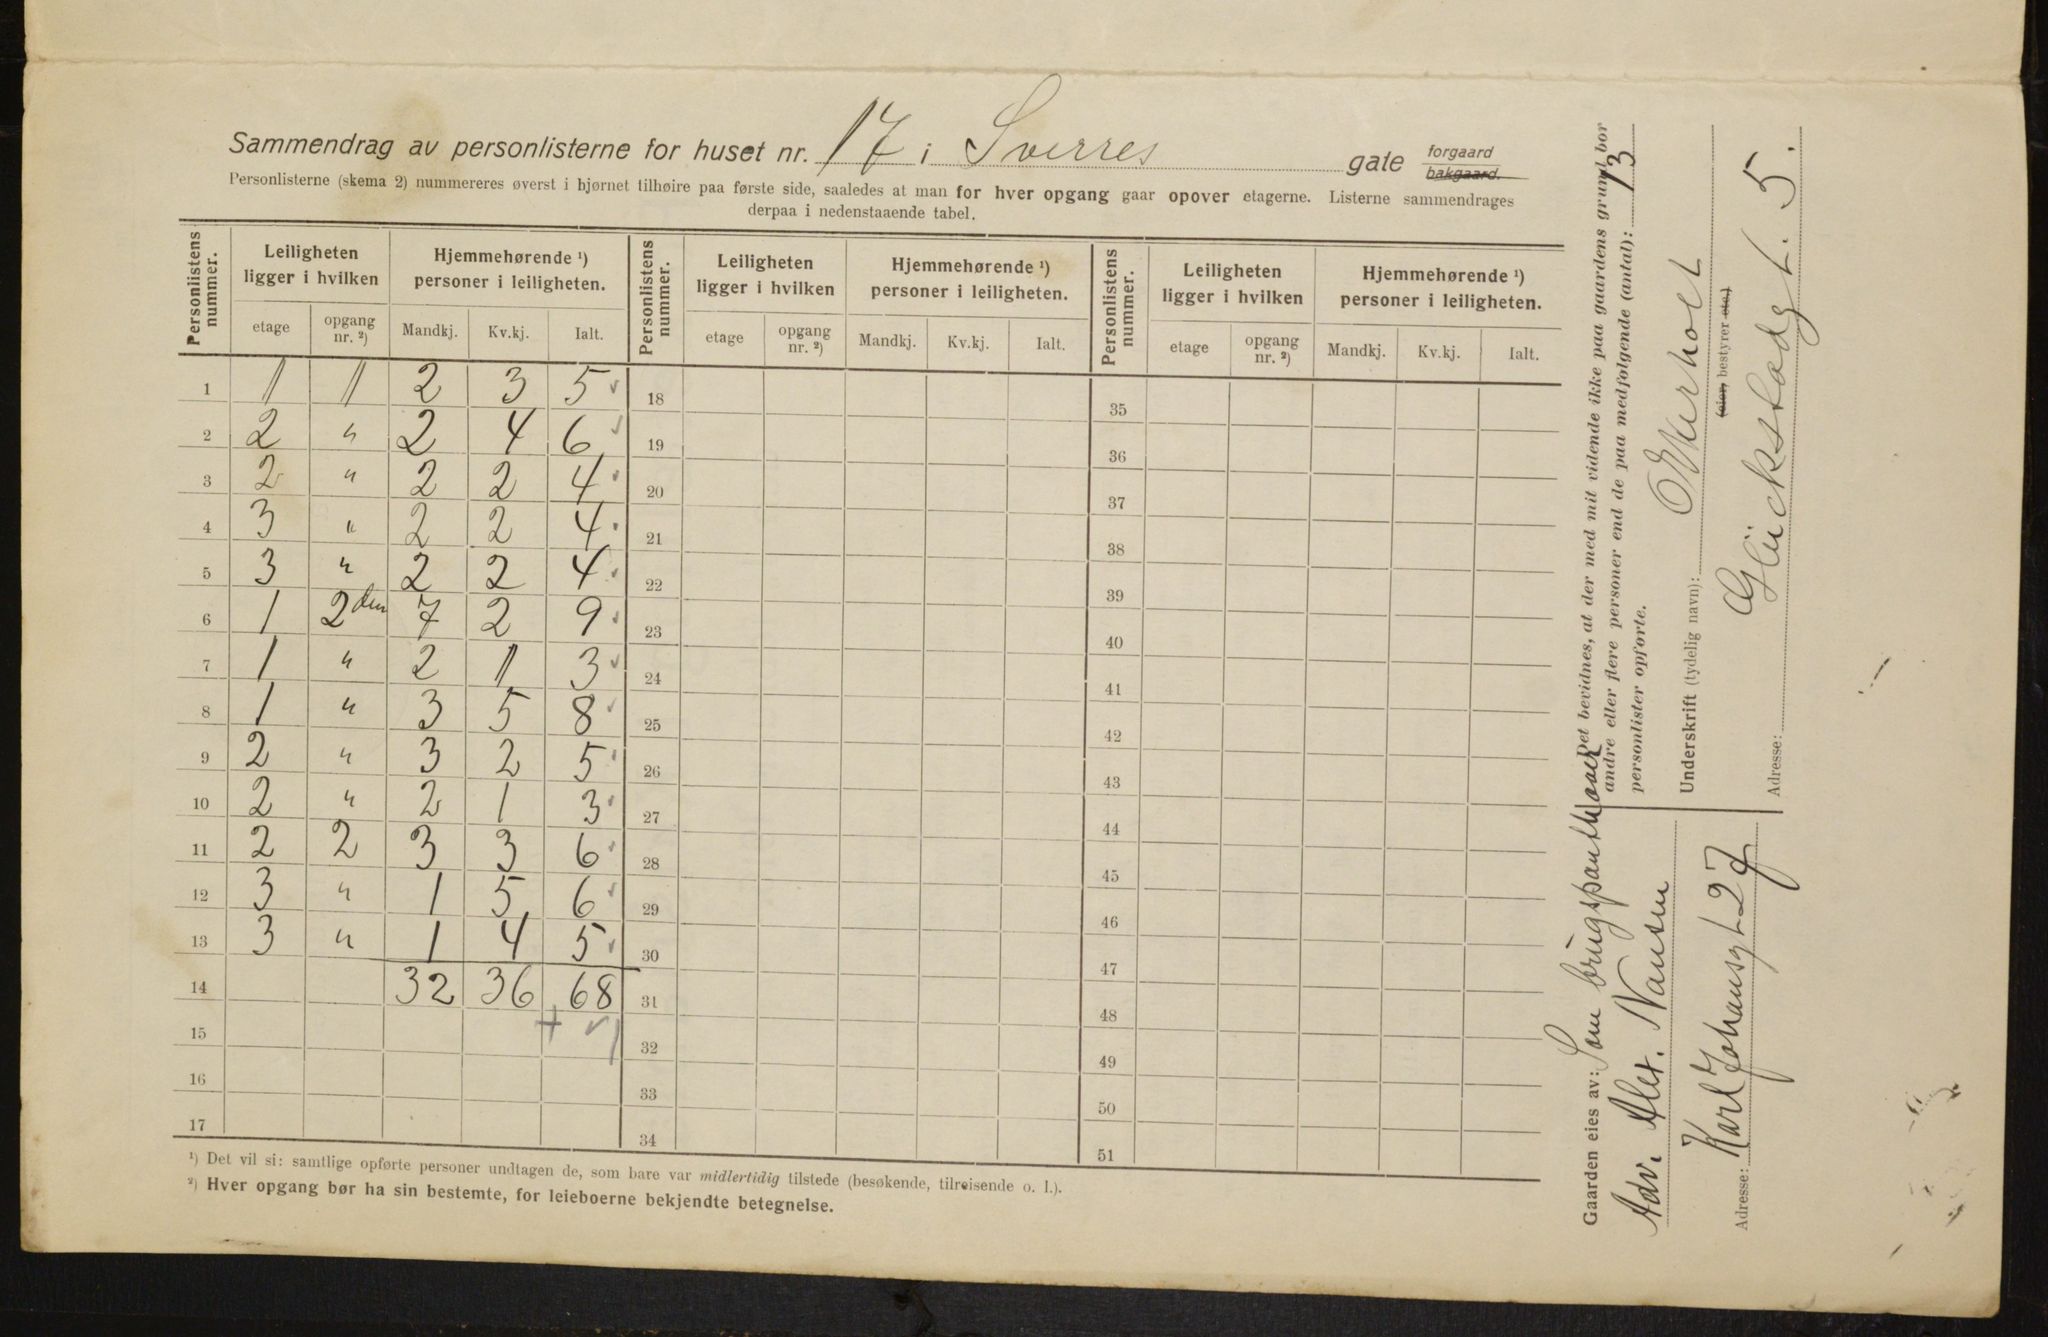 Sammendrag av personlisterne for huset nr. 17 i Sverres gate forgaard
bakgaard.
Personlisterne (skema 2) nummereres øverst i hjørnet tilhøire paa første side, saaledes at man for hver opgang gaar opover etagerne. Listerne sammendrages
derpaa i nedenstaaende tabel.
Personlistens nummer. Leiligheten ligger i hvilken Hjemmehørende ¹) personer i leiligheten. Personlistens nummer. Leiligheten ligger i hvilken Hjemmehørende ¹) personer i leiligheten. Personlistens nummer. Leiligheten ligger i hvilken Hjemmehørende ¹) personer i leiligheten.
etage opgang nr. ²) Mandkj. Kv.kj. Ialt. etage opgang nr. ²) Mandkj. Kv.kj. Ialt. etage opgang nr. ²) Mandkj. Kv.kj. Ialt.
1 1 1 2 3 5 18 35
2 2 " 2 4 6 19 36
3 2 " 2 2 4 20 37
4 3 " 2 2 4 21 38
5 3 " 2 2 4 22 39
6 1 2den 7 2 9 23 40
7 1 " 2 1 3 24 41
8 1 " 3 5 8 25 42
9 2 " 3 2 5 26 43
10 2 " 2 1 3 27 44
11 2 2 3 3 6 28 45
12 3 " 1 5 6 29 46
13 3 " 1 4 5 30 47
14 32 36 68 31 48
15 32 49
16 33 50
17 34 51
¹) Det vil si: samtlige opførte personer undtagen de, som bare var midlertidig tilstede (besøkende, tilreisende o. l.).
²) Hver opgang bør ha sin bestemte, for leieboerne bekjendte betegnelse.
Gaarden eies av: Som brugspanthaver
Adv. Alex. Nansen
Adresse: Karl Johansgt 27
Det bevidnes, at der med mit vidende ikke paa gaardens grund bor
andre eller flere personer end de paa medfølgende (antal): 13
personlister opførte.
Underskrift (tydelig navn):
(eier, bestyrer etc.)
Adresse: Glückstadgt. 5.